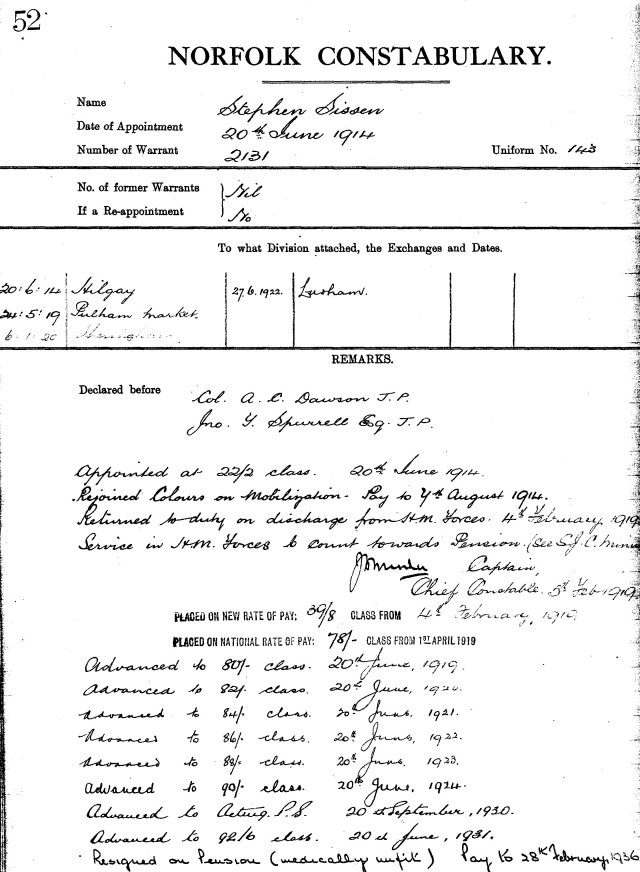 52
NORFOLK CONSTABULARY.
Name Stephen Sissen
Date of Appointment 20th June 1914
Number of Warrant 2131 Uniform No. 143
No. of former Warrants } Nil
If a Re-appointment } No
To what Division attached, the Exchanges and Dates.
20:6:14 Hilgay 27.6.1922. Lusham.
24:5:19 Pulham Market.
6:1:20
REMARKS.
Declared before Col. A. C. Dawson J.P.
Jno. Y. Spurrell Esq. J.P.
Appointed at 22/2 class. 20th June 1914.
Rejoined Colours on Mobilization - Pay to 4th August 1914.
Returned to duty on discharge from H.M. Forces. 4th February, 1919
Service in H.M. Forces to count towards Pension. (See S.J.C.
Captain,
Chief Constable. 5th Feb 1919
PLACED ON NEW RATE OF PAY: 39/8 CLASS FROM 4th February, 1919
PLACED ON NATIONAL RATE OF PAY: 78/- CLASS FROM 1ST APRIL 1919
Advanced to 80/- class. 20th June, 1919.
Advanced to 82/- class. 20th June, 1920.
Advanced to 84/- class. 20th June, 1921.
Advanced to 86/- class. 20th June, 1922.
Advanced to 88/- class. 20th June, 1923.
Advanced to 90/- class. 20th June, 1924.
Advanced to Acting P.S. 20th September, 1930.
Advanced to 92/6 class. 20th June, 1931.
Resigned on Pension (medically unfit) Pay to 28th February, 1936